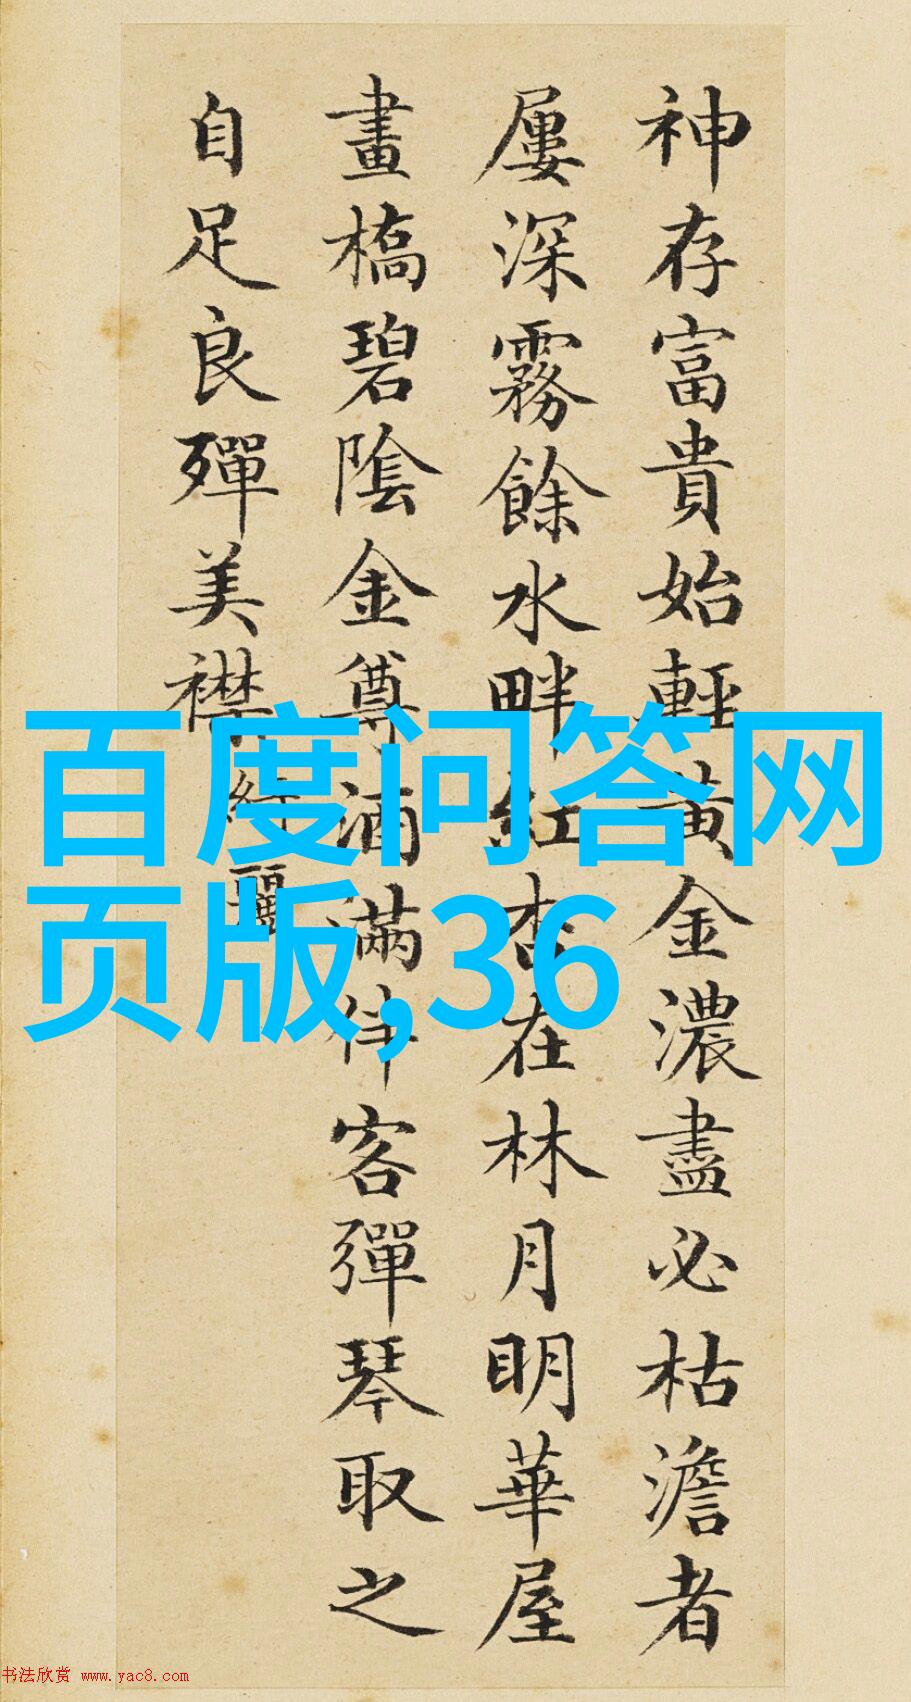 神存富貴始輕黃金濃盡必枯澹者
屢深霧餘水畔紅杏在林月明華屋
畫橋碧陰金尊酒滿伴客彈琴取之
自足良殫美襟綺麗
百度问答网
页版,36
书法欣赏 www.yac8.com